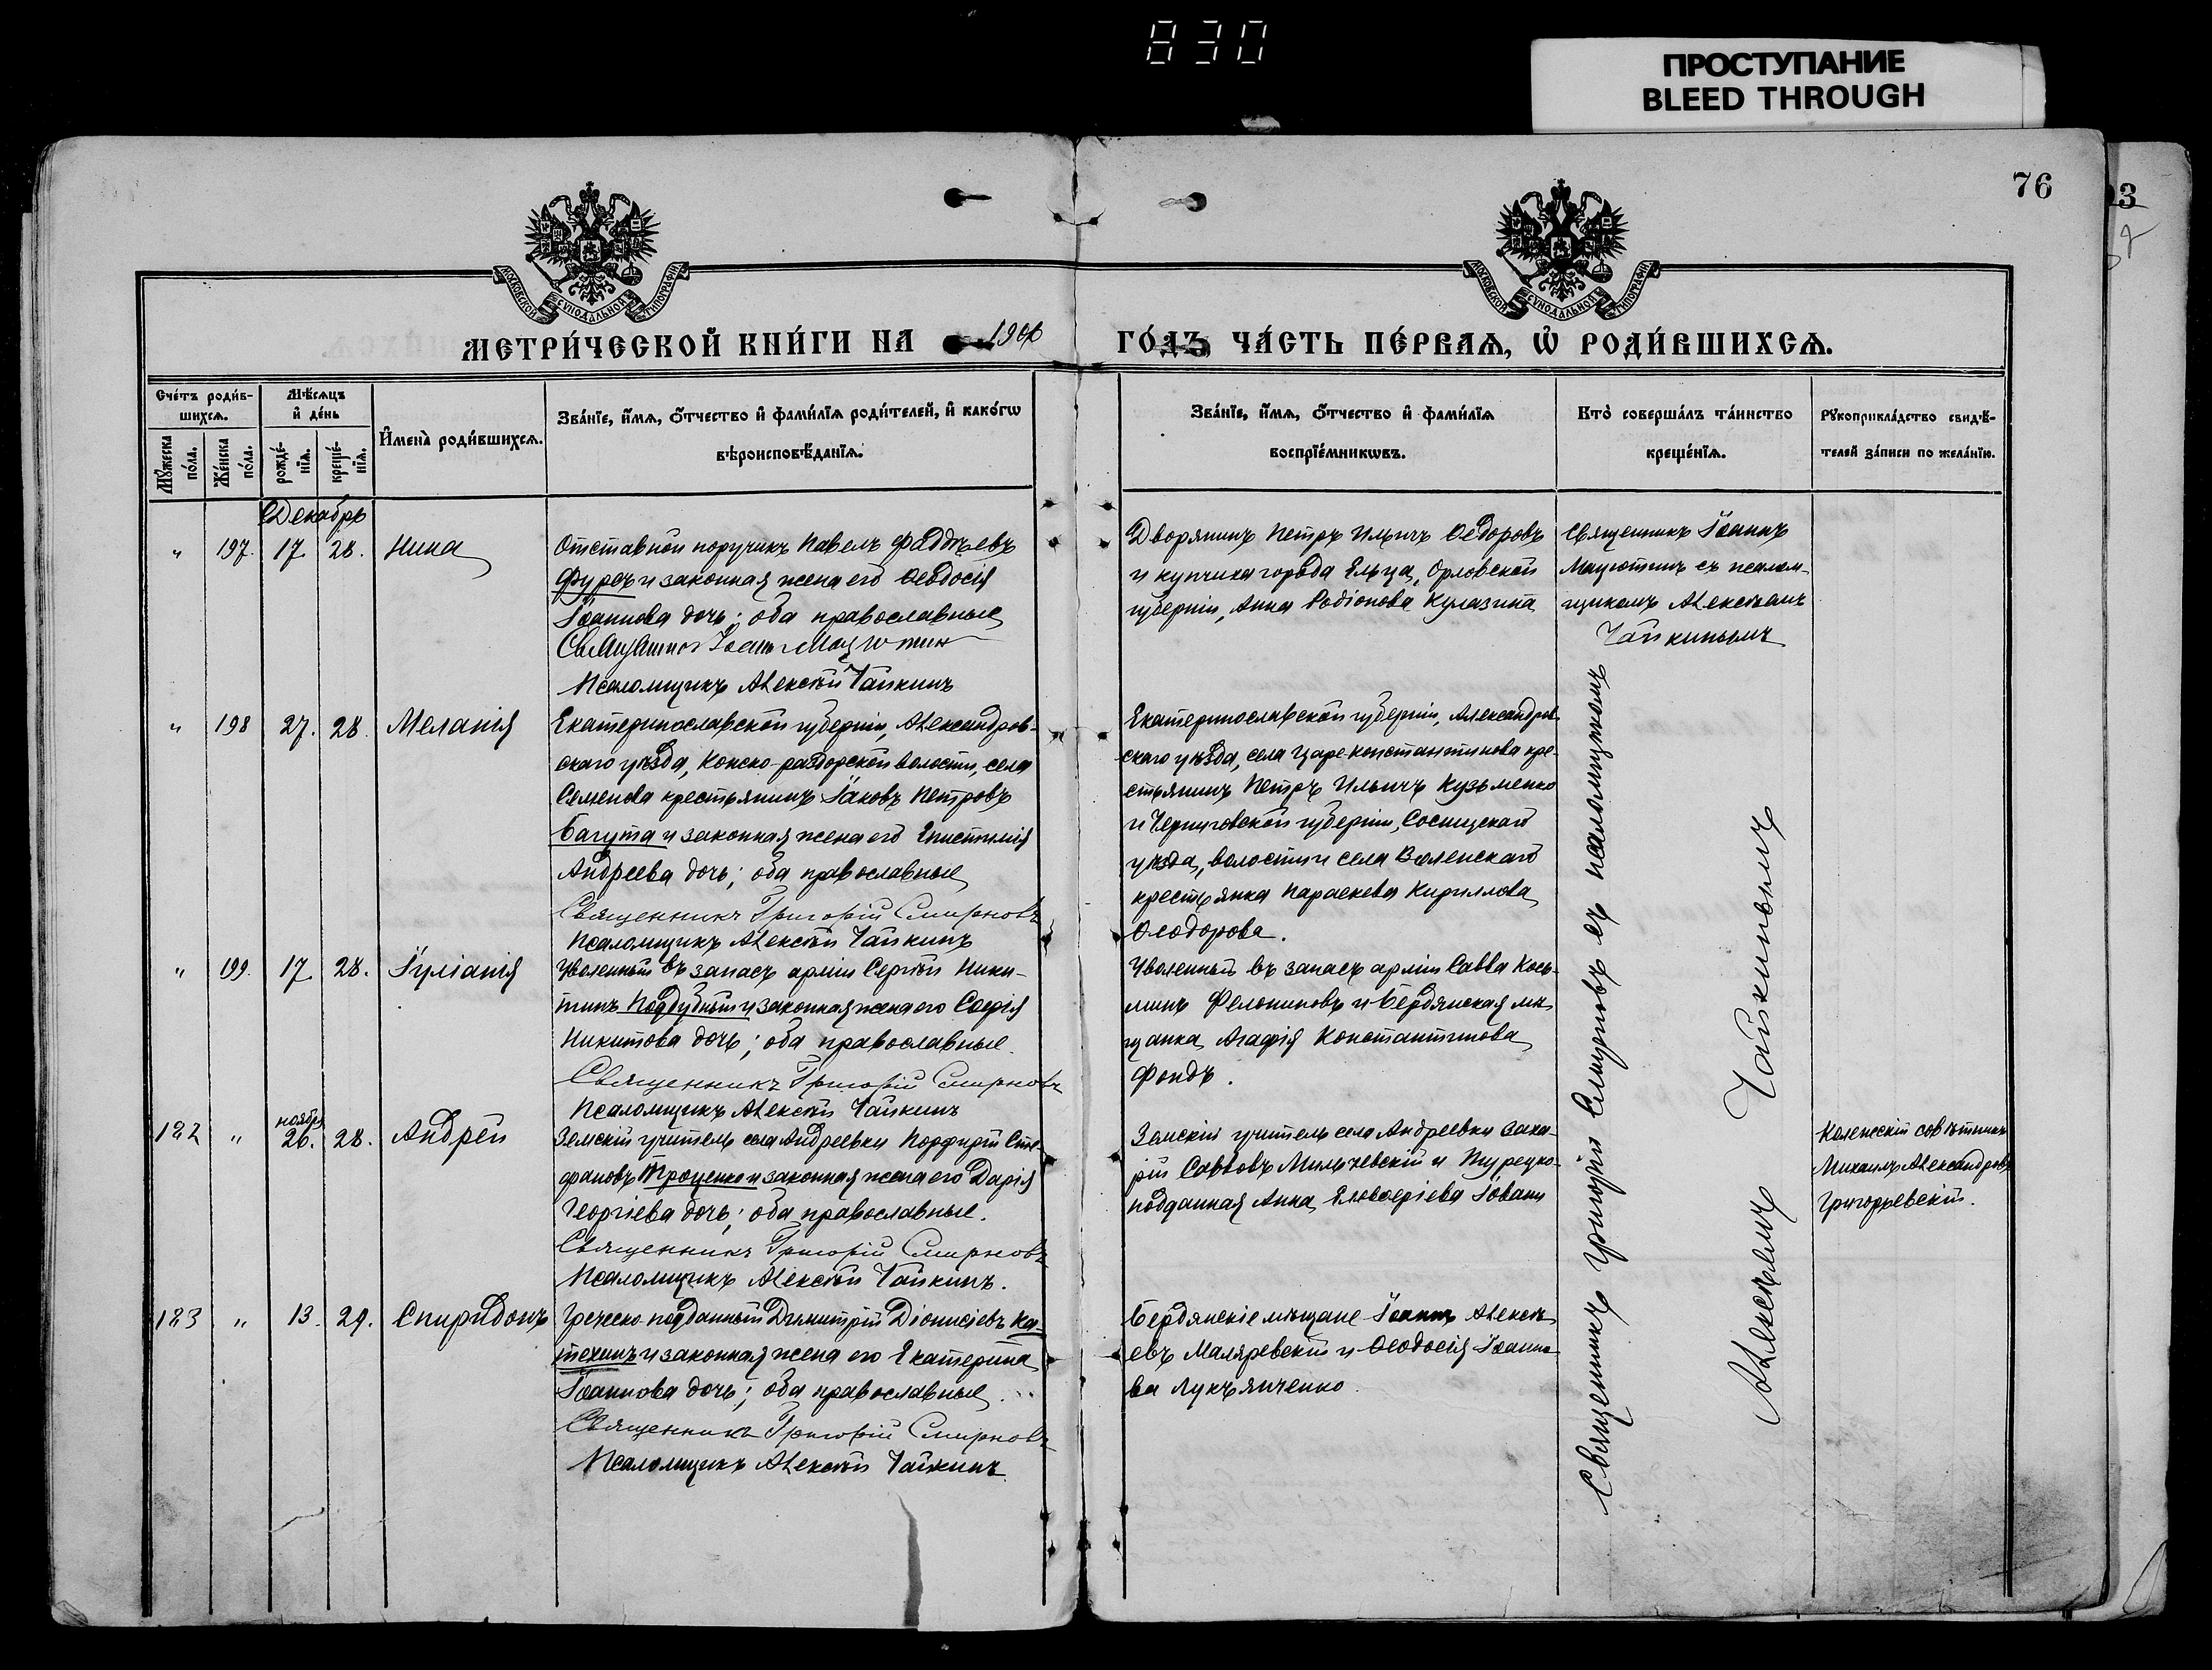 830
ПРОСТУПАНИЕ
BLEED THROUGH
76
МОСКОВСКОЙ СУНОДАЛЬНОЙ ТИПОГРАФІИ
МОСКОВСКОЙ СУНОДАЛЬНОЙ ТИПОГРАФІИ
МЕТРИ́ЧЕСКОЙ КНИ́ГИ НА
ГО́ДЪ ЧА́СТЬ ПЕ́РВАѦ, Ѡ҆ РОДИ́ВШИХСѦ.
Сче́тъ роди́в-
шихсѧ.
Мѣ́сѧцъ
и҆ де́нь
Мꙋ́жеска
по́ла.
Же́нска
по́ла.
рожде́-
нїѧ.
креще́-
нїѧ.
И҆мена̀ роди́вшихсѧ.
Зва́нїе, и҆́мѧ, ѻ҆́тчество и҆ фами́лїѧ роди́телей, и҆ како́гѡ
вѣроисповѣ́данїѧ.
Зва́нїе, и҆́мѧ, ѻ҆́тчество и҆ фами́лїѧ
воспрїе́мникѡвъ.
Кто̀ соверша́лъ та́инство
креще́нїѧ.
Рꙋкоприкла́дство свидѣ́-
телей за́писи по жела́нїю.
Декабрь
" 197. 17. 28. Нина
Отставной поручикъ Павелъ Фаддѣевъ
Фурсъ и законная жена его Ѳеодосія
Іоаннова дочь; оба православные
Священникъ Іоаннъ Мацютинъ
Псаломщикъ Алексѣй Чайкинъ
Дворянинъ Петръ Ильичъ Ѳедоровъ
и купчиха города Ельца, Орловской
губерніи, Анна Родіонова Кулазина
Священникъ Іоаннъ
Мацютинъ съ псалом-
щикомъ Алексѣемъ
Чайкинымъ
" 198 27. 28. Меланія
Екатеринославской губерніи, Александров-
скаго уѣзда, Конско-раздорской волости, села
Семенова крестьянинъ Іаковъ Петровъ
Багута и законная жена его Епистимія
Андреева дочь; оба православные
Священникъ Григорій Смирновъ
Псаломщикъ Алексѣй Чайкинъ
Екатеринославской губерніи, Александров-
скаго уѣзда, села Царе-Константинова кре-
стьянинъ Петръ Ильичъ Кузьменко
и Черниговской губерніи, Сосницкаго
уѣзда, волости и села Воленскаго
крестьянка Параскева Кириллова
Ѳеодорова.
" 199. 17. 28. Іуліанія
Уволенный въ запасъ арміи Сергѣй Ники-
тинъ Поддубный и законная жена его Софія
Никитова дочь; оба православные.
Священникъ Григорій Смирновъ
Псаломщикъ Алексѣй Чайкинъ
Уволенный въ запасъ арміи Савва Козь-
минъ Филониковъ и Бердянская мѣ-
щанка Агафія Константинова
Фондъ.
122 " ноября 26. 28. Андрей
Земскій учитель села Андреевки Порфирій Сте-
фановъ Троценко и законная жена его Дарія
Георгіева дочь; оба православные.
Священникъ Григорій Смирновъ
Псаломщикъ Алексѣй Чайкинъ.
Земскій учитель села Андреевки Заха-
рій Савовъ Мильчевскій и Турецко-
подданная Анна Елевѳеріева Іовани
Коллежскій совѣтникъ
Михаилъ Александровъ
Григорьевскій.
123 " 13. 29. Спиридонъ
Греческо-подданный Димитрій Діонисіевъ Ка-
техинъ и законная жена его Екатерина
Іоаннова дочь; оба православные.
Священникъ Григорій Смирновъ
Псаломщикъ Алексѣй Чайкинъ
Бердянскіе мѣщане Іоаннъ Алексѣ-
евъ Маляревскій и Ѳеодосія Іоанно-
ва Лукьянченко.
Священникъ Григорій Смирновъ съ псаломщикомъ
Алексѣемъ Чайкинымъ